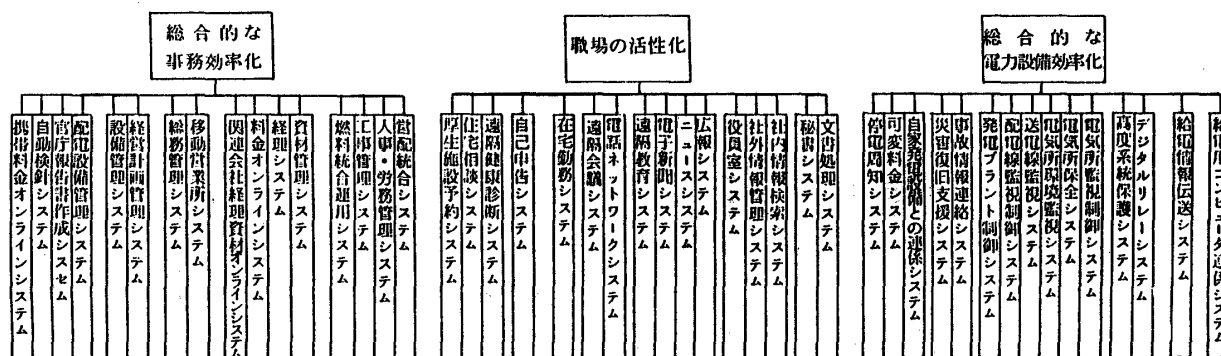 総合的な
事務効率化
携帯料金オンラインシステム
自動検針システム
官庁報告書作成システム
配電設備管理システム
設備管理システム
経営計画管理システム
総務管理システム
移動営業所システム
関連会社経理資材オンラインシステム
料金オンラインシステム
経理システム
資材管理システム
燃料統合運用システム
工事管理システム
人事・労務管理システム
営配統合システム
職場の活性化
厚生施設予約システム
住宅相談システム
遠隔健康診断システム
自己申告システム
在宅勤務システム
遠隔会議システム
電話ネットワークシステム
遠隔教育システム
電子新聞システム
ニュースシステム
広報システム
役員室システム
社外情報管理システム
社内情報検索システム
秘書システム
文書処理システム
総合的な
電力設備効率化
停電周知システム
可変料金システム
自家発電設備との連係システム
災害復旧支援システム
事故情報連絡システム
発電プラント制御システム
配電線監視制御システム
送電線監視システム
電気所環境監視システム
電気所保全システム
電気所監視制御システム
高度系統保護システム
デジタルリレーシステム
給電情報伝送システム
給電用コンピュータ連係システム